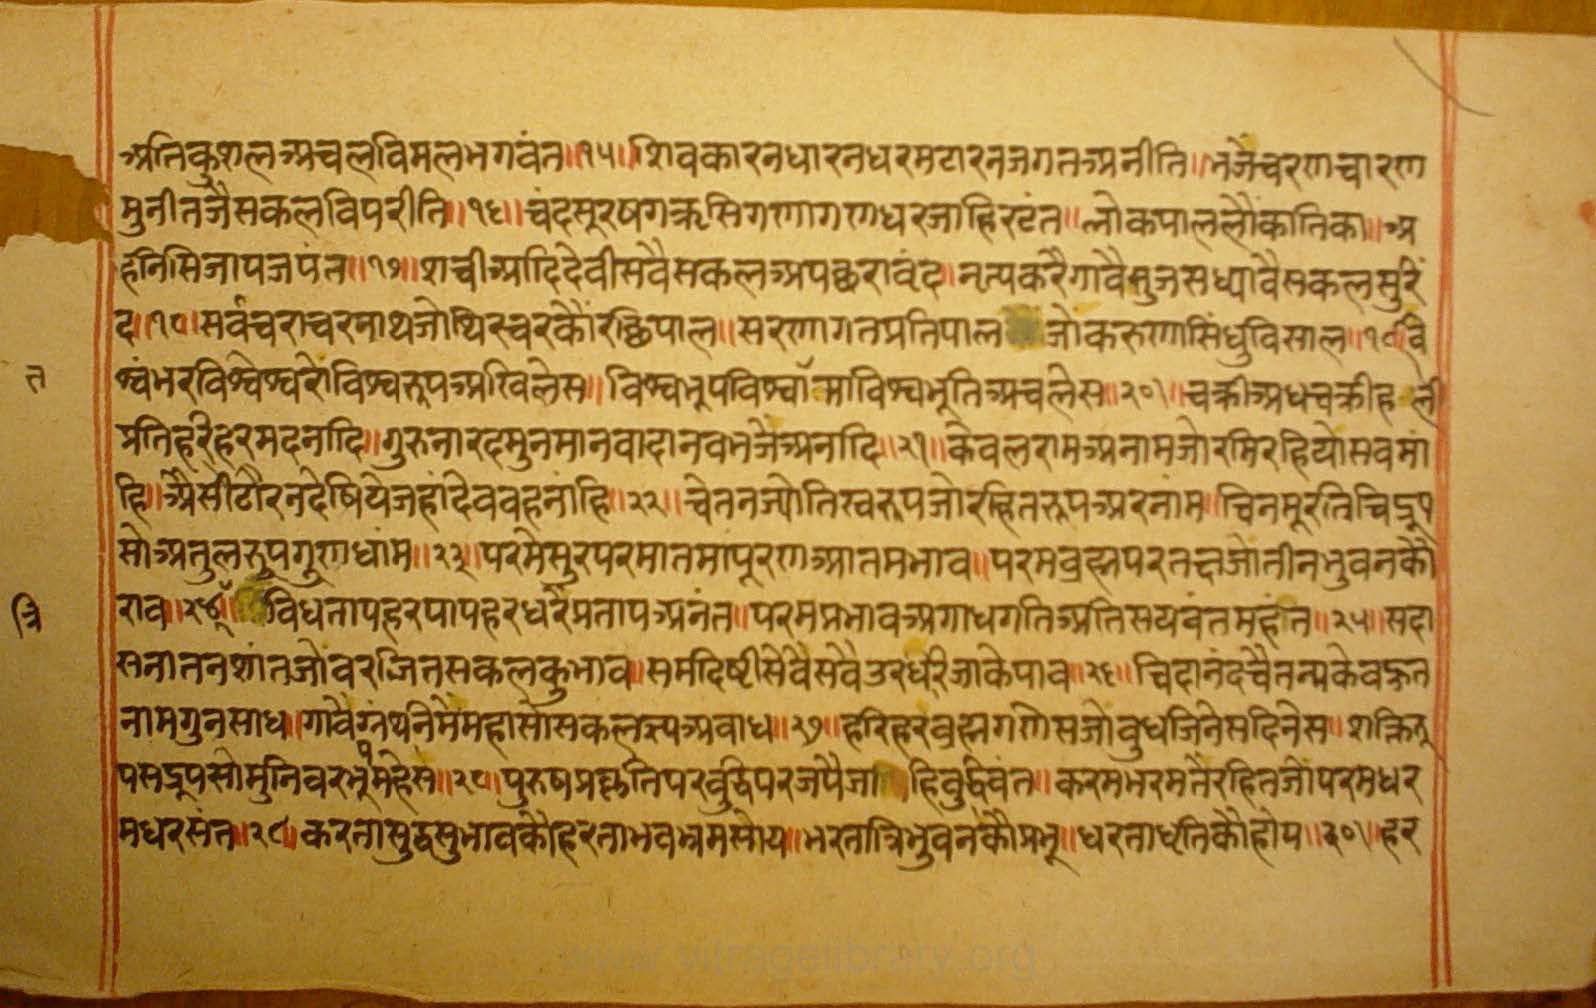 अतिकुशलअचलविमलभगवंत॥१५॥शिवकारनधारनधरमटारनजगतअनीति॥भजैचरणचारण
मुनीतजैसकलविपरीति॥१६॥चंदसूरषगऋसिगणागणधरजाहिरटंत॥लोकपाललौकांतिका॥अ
र्हनिसिजापजपंत॥१७॥शचीआदिदेवीसवैसकलअपछरावृंद॥नृत्यकरैगावैसुजसध्यावैसकलसुरिं
द॥१८॥सर्वचराचरनाथजोथिरचरकौंरछिपाल॥सरणागतप्रतिपालजोकरुणासिंधुविसाल॥१९॥वि
श्वंभरविश्वेश्वरोविश्वरूपअखिलेस॥विश्वभूपविश्वात्माविश्वभूतिअचलेस॥२०॥चक्रीअधचक्रीहली
प्रतिहरिहरमदनादि॥गुरुनारदमुनमानवादानवभजैंअनादि॥२१॥केवलरामअनामजोरमिरहियोसवमां
हि॥अैसीठौरनदेषियेजहांदेववहनांहि॥२२॥चेतनज्योतिस्वरूपजोरहितरूपअरनांम॥चिनमूरतिचिद्रूप
सोअतुलरूपगुणधांम॥२३॥परमेसुरपरमातमांपूरणआतमभाव॥परमब्रह्मपरतत्वजोतीनभुवनकौ
राव॥२४॥त्रिविधतापहरपापहरधरैप्रतापअनंत॥परमप्रभावअगाधगतिअतिसयवंतमहंत॥२५॥सदा
सनातनशांतजोवरजितसकलकुभाव॥समदिष्टीसेवैंसवैउरधरिजाकेपाव॥२६॥चिदानंदचैतन्यकेवहुत
नामगुनसाध॥गावैग्रंथनिमैमहासोसकलज्ञअवाध॥२७॥हरिहरब्रह्मगणेसजोवुधजिनेसदिनेस॥शक्तिरू
पसद्रूपसोमुनिवरभूपमहेस॥२८॥पुरुषप्रकृतिपरवुद्धिपरजपैजाहिवुद्धिवंत॥करमभरमतेंरहितजोपरमधर
मधरसंत॥२९॥करतासुद्धसुभावकौहरताभवभ्रमसोय॥भरतात्रिभुवनकौप्रभू॥धरताधृतिकौहोय॥३०॥हर
त
त्रि
www.vitragelibrary.org